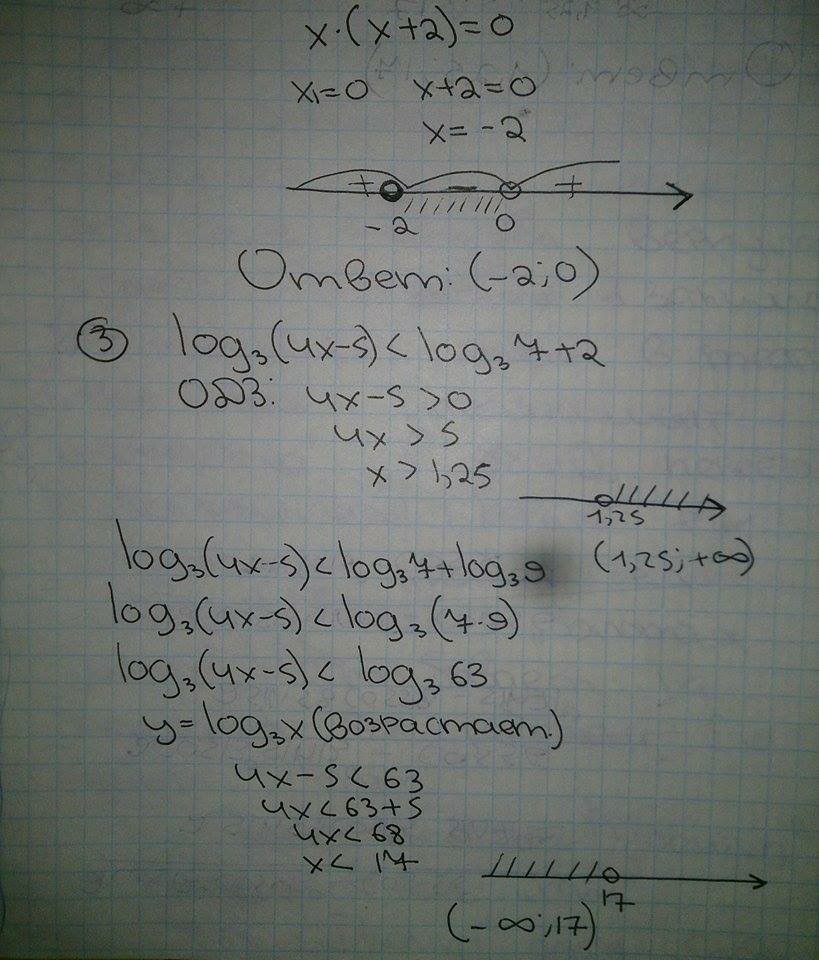 x·(x+2)=0
x₁=0 x+2=0
x=-2
+ - +
-2 0
Ответ: (-2;0)
③ log₃(4x-5)<log₃7+2
ОДЗ: 4x-5>0
4x>5
x>1,25
1,25
log₃(4x-5)<log₃7+log₃9 (1,25;+∞)
log₃(4x-5)<log₃(7·9)
log₃(4x-5)<log₃63
y=log₃x(возрастает.)
4x-5<63
4x<63+5
4x<68
x<17
17
(-∞;17)